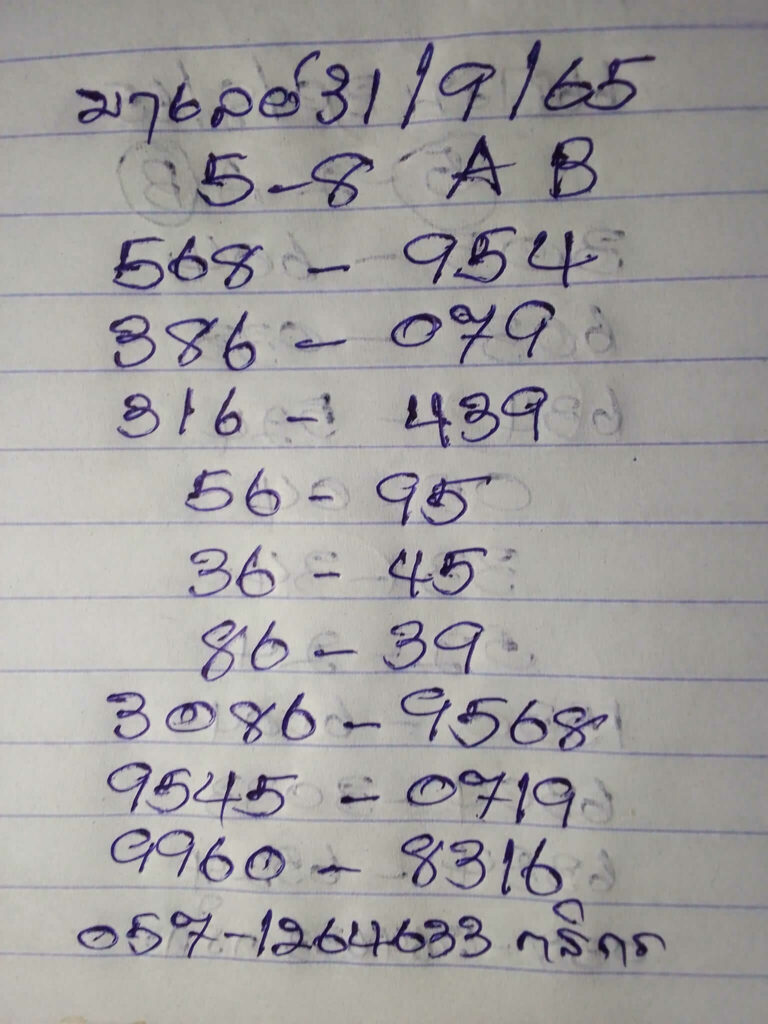 มาเลย์ 31/9/65
5-8 A B
568 - 954
386 - 079
316 - 439
56 - 95
36 - 45
86 - 39
3086 - 9568
9545 - 0719
9960 - 8316
057-1264633